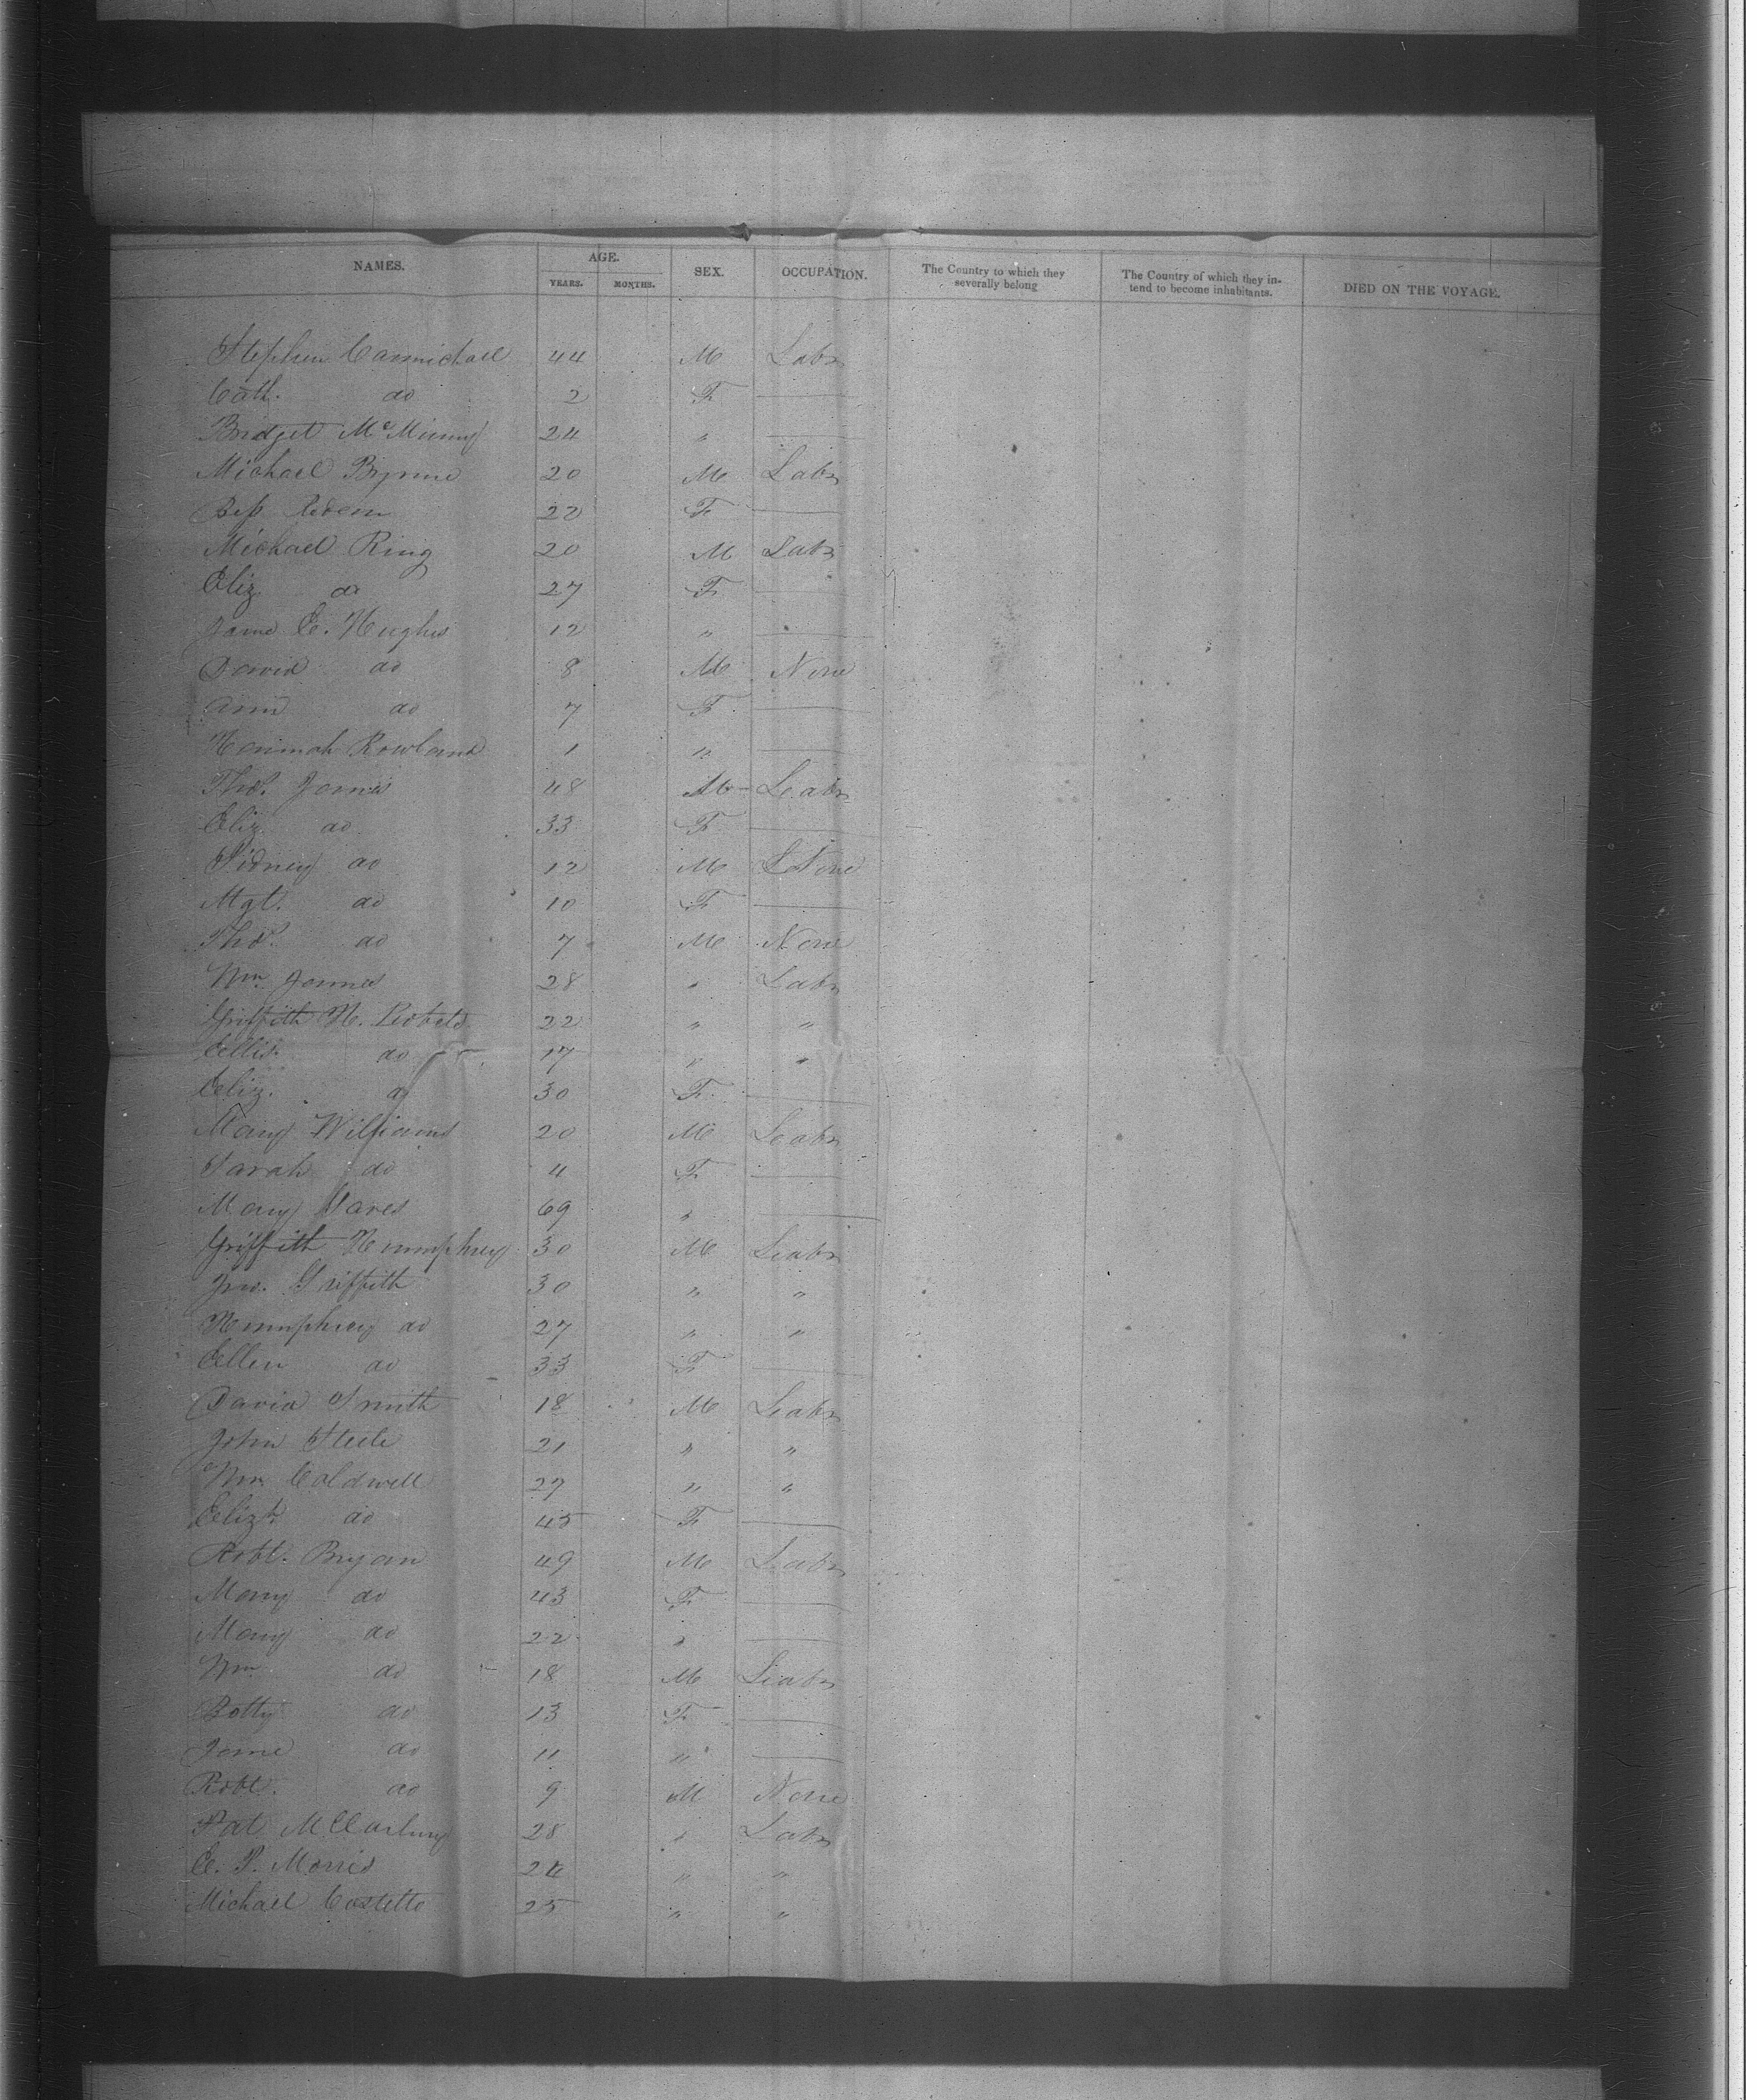 NAMES. AGE. SEX. OCCUPATION. The Country to which they severally belong The Country of which they intend to become inhabitants. DIED ON THE VOYAGE.
YEARS. MONTHS.
Stephen Carmichael 44 M Labr
Cath. do 2 F —
Bridget 24 " —
Michael Byrne 20 M Labr
Bess 22 F —
Michael Ring 20 M Labr
Eliz do 27 F —
Jane E. Hughes 12 " —
David do 8 M None
Ann do 7 F —
Hannah Rowland 1 " —
Thos. Jones 48 M Labr
Eliz do 33 F —
Sidney do 12 M None
Mgt. do 10 F —
Thos. do 7 M None
Wm Jones 28 " Labr
Griffith H. 22 " "
Ellis. do 17 " "
Eliz. do 30 F —
Mary Williams 20 M Labr
Sarah do 4 F —
Mary 69 " —
Griffith Humphrey 30 M Labr
Jno. Griffith 30 " "
Humphrey do 27 " "
Ellen do 33 F —
David Smith 18 M Labr
John Steele 21 " "
Wm Coldwell 27 " "
Elizh do 45 F —
Robt. Bryan 49 M Labr
Mary do 43 F —
Mary do 22 " —
Wm do 18 M Labr
Betty do 13 F —
Jane do 11 " —
Robt. do 9 M None
Pat 28 " Labr
E. P. Morris 24 " "
Michael Costello 25 " "